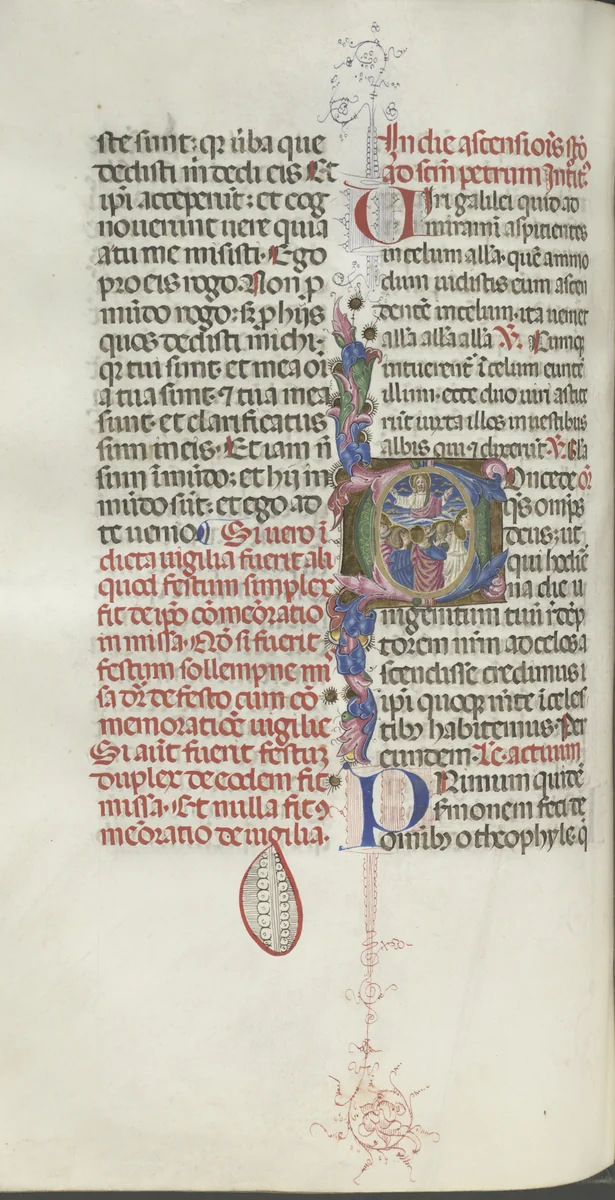 ste sunt: qr ūba que
dedisti m̄ dedi eis Et
ip̄i acceperūt: et cog
nouerunt uere quia
a tu me misisti. Ego
pro eis rogo. Non p̄
mūdo rogo: sꝫ p hijs
quos dedisti michi:
qr tui sunt. et mea oī
a tua sunt. ⁊ tua mea
sunt. et clarificatus
sum in eis. Et iam nō
sum ī mūdo: et hij in
mūdo sūt: et ego ad
te uenio. Si uero ī
dicta uigilia fuerit ali
quod festum simplex
fit de ip̄o cōmeōratio
in missa. Qd̄ si fuerit
festum sollempne mi
sa dr̄ de festo cum cō
memoratiōe uigilie
Si aūt fuerit festuꝫ
duplex de eodem fit
missa. Et nulla fit ꝯ
meōratio de uigilia.
In die ascensiōis stō
ad scm̄ petrum Intrō͛
Uiri galilei quid ad
miramī aspicientes
in celum allā. quē ammo
dum uidistis eum ascen
dentē in celum. ita ueniet
allā allā allā V. Cumqꝫ
intuerent̄ ī celum eunte
illum. ecce duo uiri astite
rūt iuxta illos in uestibus
albis qui ⁊ dixerūt. V. Glā
Concede or̄
qs̄ omps̄
deus: ut
qui hodiē
na die u
nigenitum tuū rēdēp
torem nr̄m ad celos a
scendisse credimus i
ip̄i quoqꝫ mēte ī celes
tibꝫ habitemus. Per
eundem. Lc̄. actuum
Primum quidē
sermonem feci de
omībꝫ o theophyle. q̄